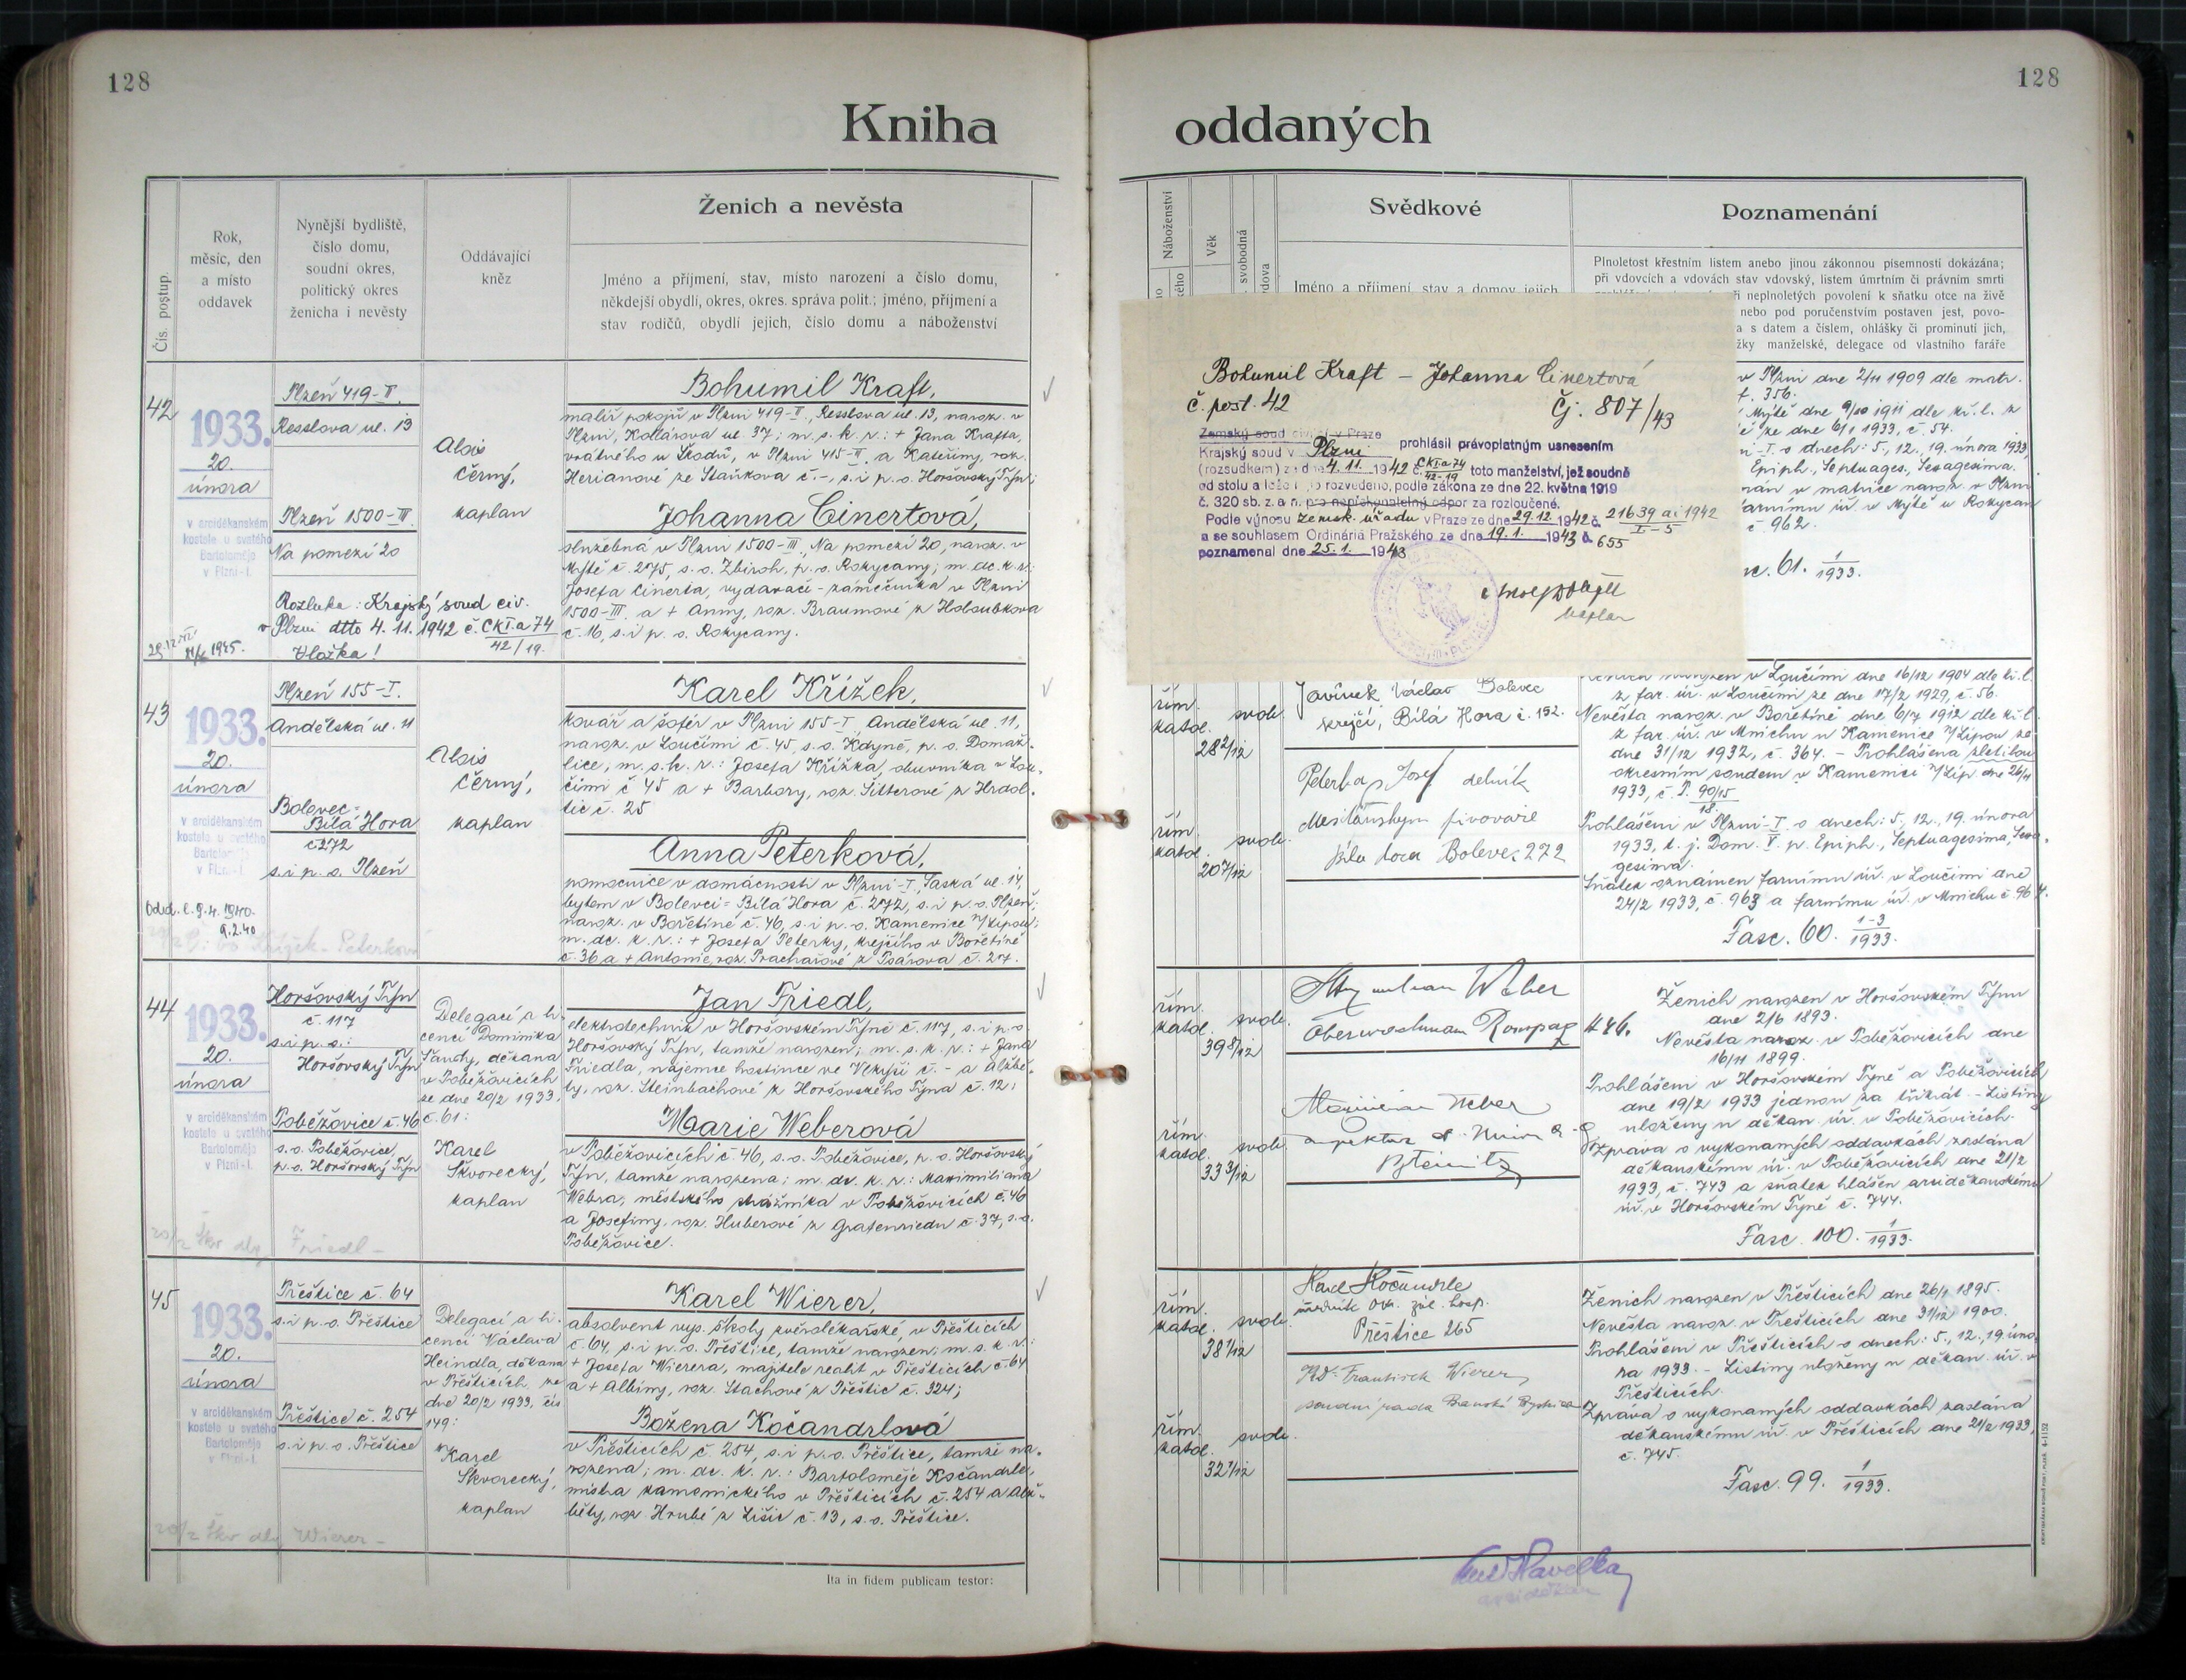 128
128
Kniha
oddaných
Čís. postup.
Rok,
měsíc, den
a místo
oddavek
Nynější bydliště,
číslo domu,
soudní okres,
politický okres
ženicha i nevěsty
Oddávající
kněz
Ženich a nevěsta
Jméno a příjmení, stav, místo narození a číslo domu,
někdejší obydlí, okres, okres. správa polit.; jméno, příjmení a
stav rodičů, obydlí jejich, číslo domu a náboženství
Náboženství
Věk
svobodná
vdova
Svědkové
Jméno a příjmení, stav a domov jejich
Poznamenání
Plnoletost křestním listem anebo jinou zákonnou písemností dokázána;
při vdovcích a vdovách stav vdovský, listem úmrtním či právním smrti
ři neplnoletých povolení k sňatku otce na živě
nebo pod poručenstvím postaven jest, povo-
a s datem a číslem, ohlášky či prominutí jich,
žky manželské, delegace od vlastního faráře
42
1933.
20.
února
v arciděkanském
kostele u svatého
Bartoloměje
v Plzni - I.
Plzeň 419-II.
Resslova ul. 13
Plzeň 1500-III.
Na pomezí 20
Alois
Černý,
kaplan
Rozluka: Krajský soud civ.
v Plzni dtto 4. 11. 1942 č. CkI.a 74
42/19.
Vložka!
1945.
Bohumil Kraft,
malíř pokojů v Plzni 419-II, Resslova ul. 13, naroz. v
Plzni, Kollárova ul. 37; m. s. k. r.: + Jana Krafta,
vrátného u Škodů, v Plzni 415-II. a Kateřiny, roz.
Herianové ze Staňkova č. -, s. i p. o. Horšovský Týn;
Johanna Cinertová,
služebná v Plzni 1500-III, Na pomezí 20, naroz. v
Mýtě č. 275, s. o. Zbiroh, p. o. Rokycany; m. dc. k. r.:
Josefa Cinerta, vydavače-zámečníka v Plzni
1500-III a + Anny, roz. Braumové z Holoubkova
č. 16, s. i p. o. Rokycany.
Bohumil Kraft – Johanna Cinertová
č. post. 42
Čj. 807/43
Zemský soud civilní v Praze
Krajský soud v Plzni prohlásil právoplatným usnesením
(rozsudkem) ze dne 4. 11. 1942 č. CkI.a 74 42-19 toto manželství, jež soudně
od stolu a lože rozvedeno, podle zákona ze dne 22. května 1919
č. 320 sb. z. a n. pro nepřekonatelný odpor za rozloučené.
Podle výnosu zemsk. úřadu v Praze ze dne 29. 12. 1942 č. 21639 ai 1942 I-5
a se souhlasem Ordinária Pražského ze dne 19. 1. 1943 č. 655
poznamenal dne 25. 1. 1943
kaplan
v Plzni dne 2/11 1909 dle matr.
f. 356.
Mýtě dne 9/10 1911 dle kř. l. z
ze dne 6/1 1933, č. 54.
-I. o dnech: 5., 12., 19. února 1933
Epiph., Septuages., Sexagesima.
v matrice naroz. v Plzni
farnímu úř. v Mýtě u Rokycan
č 962.
61. 1/1933.
43
1933.
20.
února
v arciděkanském
kostele u svatého
Bartoloměje
v Plzni - I.
Plzeň 155-I.
Andělská ul. 11
Bolevec-
Bílá Hora
č 272
s. i p. o. Plzeň
Alois
Černý,
kaplan
Odd. l. 9. 4. 1940.
9. 2. 40
Karel Křížek,
kovář a šofér v Plzni 155-I, Andělská ul. 11,
naroz. v Loučimi č. 45, s. o. Kdyně, p. o. Domaž-
lice; m. s. k. r.: Josefa Křížka, obuvníka v Lou-
čimi č 45 a + Barbory, roz. Sitterové z Hradol-
tic č. 25
Anna Peterková,
pomocnice v domácnosti v Plzni-I, Saská ul. 14,
bytem v Bolevci-Bílá Hora č. 272, s. i p. o. Plzeň;
naroz. v Bořetíně č. 46, s. i p. o. Kamenice n/Lipou;
m. dc. k. r.: + Josefa Peterky, krejčího v Bořetíně
č. 36 a + Antonie, roz. Prachařové z Psárova č. 27.
řím.
katol.
svob.
28 2/12
řím.
katol.
svob.
20 7/12
Javůrek Václav Bolevec
krejčí, Bílá Hora č. 152.
Peterka Josef dělník
Měšťanským pivovaře
Bílá hora Bolevec 272
Ženich narozen v Loučimi dne 16/12 1904 dle kř. l.
z far. úř. v Loučimi ze dne 17/2 1929, č. 56.
Nevěsta naroz. v Bořetíně dne 6/7 1912 dle kř. l.
z far. úř. v Mnichu u Kamenice n/Lipou ze
dne 31/12 1932, č. 364. – Prohlášena zletilou
okresním soudem v Kamenici n/Lip. dne 24/11
1933, č. P. 90/15
18.
Prohlášeni v Plzni-I. o dnech: 5., 12., 19. února
1933, t. j. Dom. V. p. Epiph., Septuagesima, Sexa-
gesima.
Sňatek oznámen farnímu úř. v Loučimi dne
24/2 1933, č. 963 a farnímu úř. v Mnichu č. 964.
Fasc. 60. 1-3/1933.
44
1933.
20.
února
v arciděkanském
kostele u svatého
Bartoloměje
v Plzni - I.
Horšovský Týn
č. 117
s. i p. o.:
Horšovský Týn
Poběžovice č. 46
s. o. Poběžovice,
p. o. Horšovský Týn
Delegací a li-
cencí Dominika
Šandy, děkana
v Poběžovicích
ze dne 20/2 1933,
č. 61:
Karel
Škvorecký,
kaplan
Friedl –
Jan Friedl,
elektrotechnik v Horšovském Týně č. 117, s. i p. o.
Horšovský Týn, tamže narozen; m. s. k. r.: + Jana
Friedla, nájemce hostince ve Vlkýši č. - a Alžbě-
ty, roz. Steinbachové z Horšovského Týna č. 12;
Marie Weberová
v Poběžovicích č. 46, s. o. Poběžovice, p. o. Horšovský
Týn, tamže narozena; m. dc. k. r.: Maximiliana
Webra, městského strážníka v Poběžovicích č. 46
a Josefiny, roz. Huberové z Grafenriedu č. 37, s. o.
Poběžovice.
řím.
katol.
svob.
39 8/12
řím.
katol.
svob.
33 3/12
Weber
Oberwachmann Ronsperg #46.
Maximilian Weber
Ženich narozen v Horšovském Týnu
dne 2/6 1893.
Nevěsta naroz. v Poběžovicích dne
16/11 1899.
Prohlášeni v Horšovském Týně a Poběžovicích
dne 19/2 1933 jednou za třikrát. – Listiny
uloženy u děkan. úř. v Poběžovicích.
Zpráva o vykonaných oddavkách zaslána
děkanskému úř. v Poběžovicích dne 21/2
1933, č. 743 a sňatek hlášen arciděkanskému
úř. v Horšovském Týně č. 744.
Fasc. 100. 1/1933.
45
1933.
20.
února
v arciděkanském
kostele u svatého
Bartoloměje
v Plzni - I.
Přeštice č. 64
s. i p. o. Přeštice
Přeštice č. 254
s. i p. o. Přeštice
Delegací a li-
cencí Václava
Heindla, děkana
v Přešticích ze
dne 20/2 1933, čís
149:
Karel
Škvorecký,
kaplan
Wierer –
Karel Wierer,
absolvent vys. školy zvěrolékařské, v Přešticích
č. 64, s. i p. o. Přeštice, tamže narozen; m. s. k. r.:
+ Josefa Wierera, majitele realit v Přešticích č. 64
a + Albiny, roz. Stachové z Přeštic č. 324;
Božena Kočandrlová
v Přešticích č 254, s. i p. o. Přeštice, tamže na-
rozena; m. dc. k. r.: Bartoloměje Kočandrle,
mistra kamnického v Přešticích č. 254 a Alž-
běty, roz. Hrubé z Lišic č. 13, s. o. Přeštice.
řím.
katol.
svob.
38 1/12
řím.
katol.
svob.
32 1/12
Karel Kočandrle
úředník Okr. zál. hosp.
Přeštice 265
JUDr. František Wierer
soudní rada Banská Bystrica
Ženich narozen v Přešticích dne 26/1 1895.
Nevěsta naroz. v Přešticích dne 31/12 1900.
Prohlášeni v Přešticích o dnech: 5., 12., 19. úno-
ra 1933. – Listiny uloženy u děkan. úř. v
Přešticích.
Zpráva o vykonaných oddavkách zaslána
děkanskému úř. v Přešticích dne 21/2 1933,
č. 745.
Fasc. 99. 1/1933.
Ita in fidem publicam testor:
Havelka
arciděkan